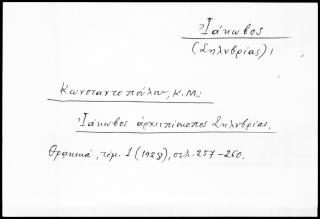 Ἰάκωβος
(Σηλυβρίας) 1
Κωνσταντοπούλου, Κ.Μ.:
Ἰάκωβος ἀρχιεπίσκοπος Σηλυβρίας.
Θρακικά, τόμ. 1 (1928), σελ. 257-260.